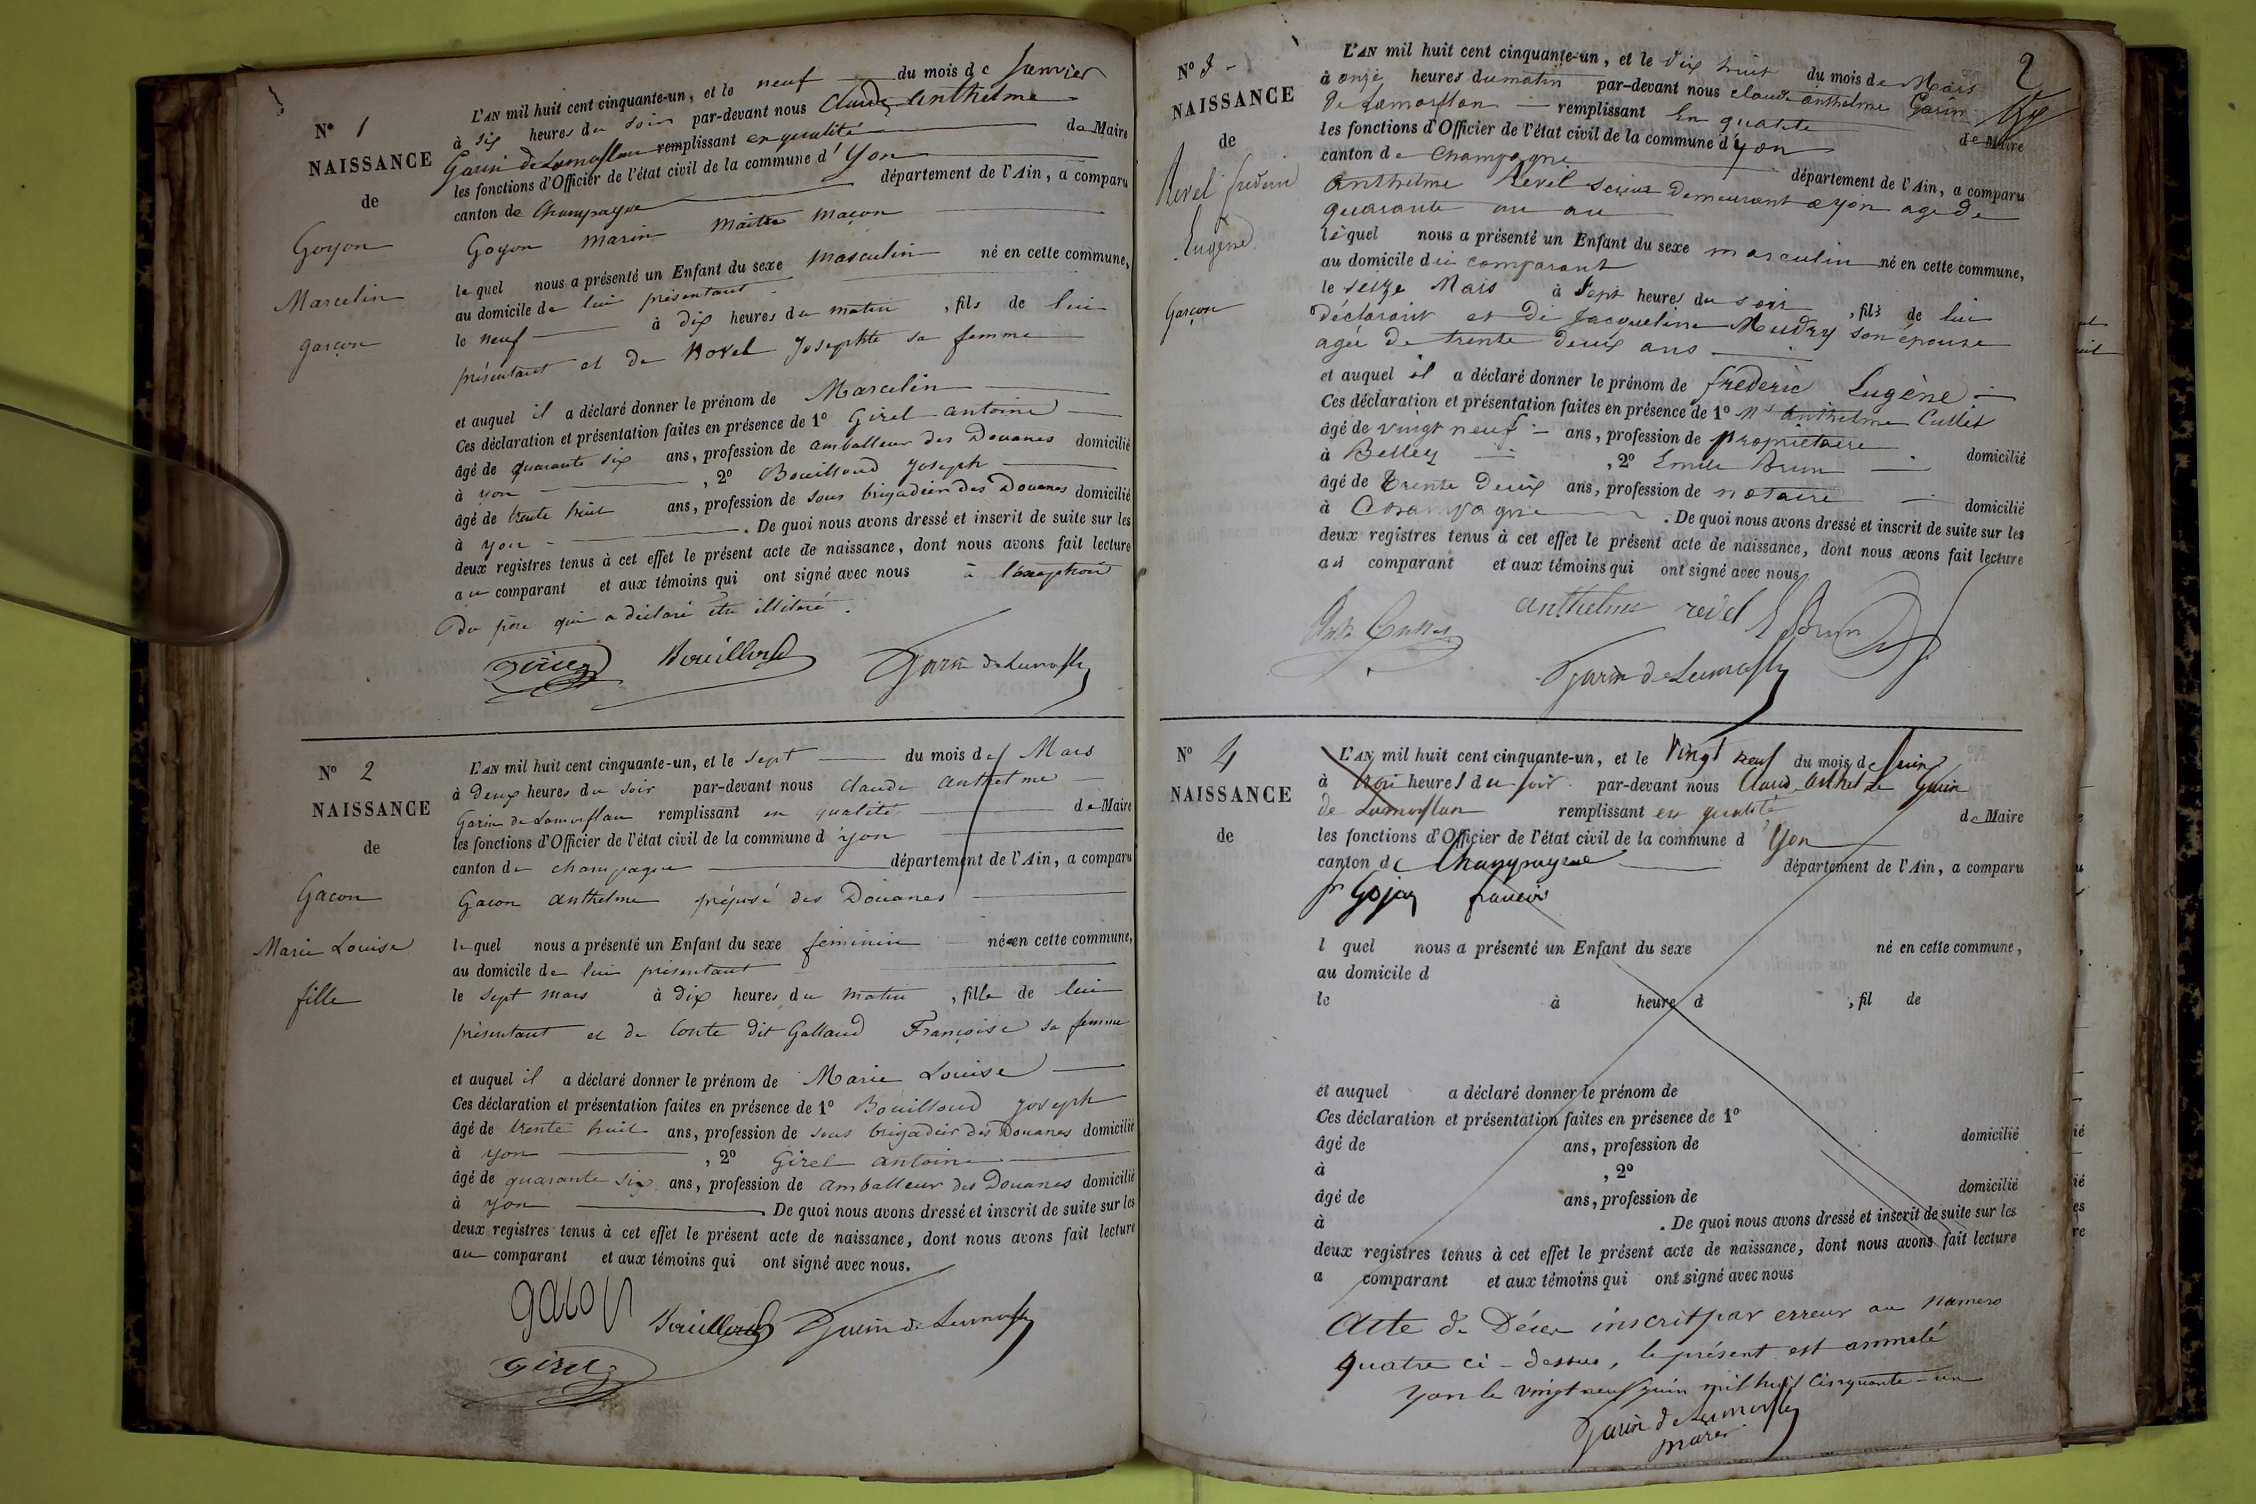 N° 1
NAISSANCE
de
Goyon
Marcelin
garçon
L'AN mil huit cent cinquante-un, et le neuf du mois de Janvier
à six heures du soir par-devant nous Claude Anthelme
Garin de Lamorflan remplissant en qualité de Maire
les fonctions d'Officier de l'état civil de la commune d'Yon
canton de Champagne département de l'Ain, a comparu
Goyon Marin Maitre Maçon
lequel nous a présenté un Enfant du sexe Masculin né en cette commune,
au domicile de lui présentant
le neuf à dix heures du matin, fils de lui
présentant et de Josephte sa femme
et auquel il a déclaré donner le prénom de Marcelin
Ces déclaration et présentation faites en présence de 1° Girel antoine
âgé de quarante six ans, profession de amballeur des Douanes domicilié
à yon, 2° Bouilloud Joseph
âgé de trente huit ans, profession de sous brigadier des Douanes domicilié
à yon. De quoi nous avons dressé et inscrit de suite sur les
deux registres tenus à cet effet le présent acte de naissance, dont nous avons fait lecture
au comparant et aux témoins qui ont signé avec nous à l'exception
Du père qui a déclaré être illitéré.
Girel Bouilloud Garin de Lamorflan
N° 2
NAISSANCE
de
Gacon
Marie Louise
fille
L'AN mil huit cent cinquante-un, et le sept du mois de Mars
à deux heures du soir par-devant nous Claude anthelme
Garin de Lamorflan remplissant en qualité de Maire
les fonctions d'Officier de l'état civil de la commune d'yon
canton de champagne département de l'Ain, a comparu
Gacon anthelme préposé des Douanes
lequel nous a présenté un Enfant du sexe féminin née en cette commune,
au domicile de lui présentant
le sept mars à dix heures du matin, fille de lui
présentant et de Conte dit Galland Françoise sa femme
et auquel il a déclaré donner le prénom de Marie Louise
Ces déclaration et présentation faites en présence de 1° Bouilloud Joseph
âgé de trente huit ans, profession de sous brigadier des Douanes domicilié
à yon, 2° Girel antoine
âgé de quarante six ans, profession de amballeur des Douanes domicilié
à yon. De quoi nous avons dressé et inscrit de suite sur les
deux registres tenus à cet effet le présent acte de naissance, dont nous avons fait lecture
au comparant et aux témoins qui ont signé avec nous.
gacon Bouilloud Garin de Lamorflan
Girel
2
N° 3
NAISSANCE
de
Revel frederic
Eugène
Garçon
L'AN mil huit cent cinquante-un, et le dix huit du mois de Mars
à onze heures du matin par-devant nous claude anthelme Garin
de Lamorflan remplissant En qualité de Maire
les fonctions d'Officier de l'état civil de la commune d'yon
canton de Champagne département de l'Ain, a comparu
Anthelme Revel scieur demeurant a yon age de
quarante un an
lequel nous a présenté un Enfant du sexe masculin né en cette commune,
au domicile du comparant
le seize Mars à sept heures du soir, fils de lui
déclarant et de Jacqueline Mudry son épouse
agée de trente deux ans
et auquel il a déclaré donner le prénom de frederic Eugène
Ces déclaration et présentation faites en présence de 1° Mr Anthelme Cullet
âgé de vingt neuf ans, profession de propriétaire domicilié
à Belley, 2° Emile Brun
âgé de trente deux ans, profession de notaire domicilié
à Champagne. De quoi nous avons dressé et inscrit de suite sur les
deux registres tenus à cet effet le présent acte de naissance, dont nous avons fait lecture
au comparant et aux témoins qui ont signé avec nous
anthelme revel E Brun
Garin de Lamorflan
N° 4
NAISSANCE
de
L'AN mil huit cent cinquante-un, et le vingt neuf du mois de Juin
à trois heures du soir par-devant nous Claude Anthelme Garin
de Lamorflan remplissant en qualité de Maire
les fonctions d'Officier de l'état civil de la commune d'Yon
canton de Champagne département de l'Ain, a comparu
francois
l quel nous a présenté un Enfant du sexe né en cette commune,
au domicile d
le à heure d, fil de
et auquel a déclaré donner le prénom de
Ces déclaration et présentation faites en présence de 1°
âgé de ans, profession de domicilié
à, 2°
âgé de ans, profession de domicilié
à. De quoi nous avons dressé et inscrit de suite sur les
deux registres tenus à cet effet le présent acte de naissance, dont nous avons fait lecture
a comparant et aux témoins qui ont signé avec nous
Acte de Décès inscrit par erreur au numero
quatre ci-dessus, le présent est annulé
yon le vingt neuf juin mil huit cinquante-un
Garin de Lamorflan
maire